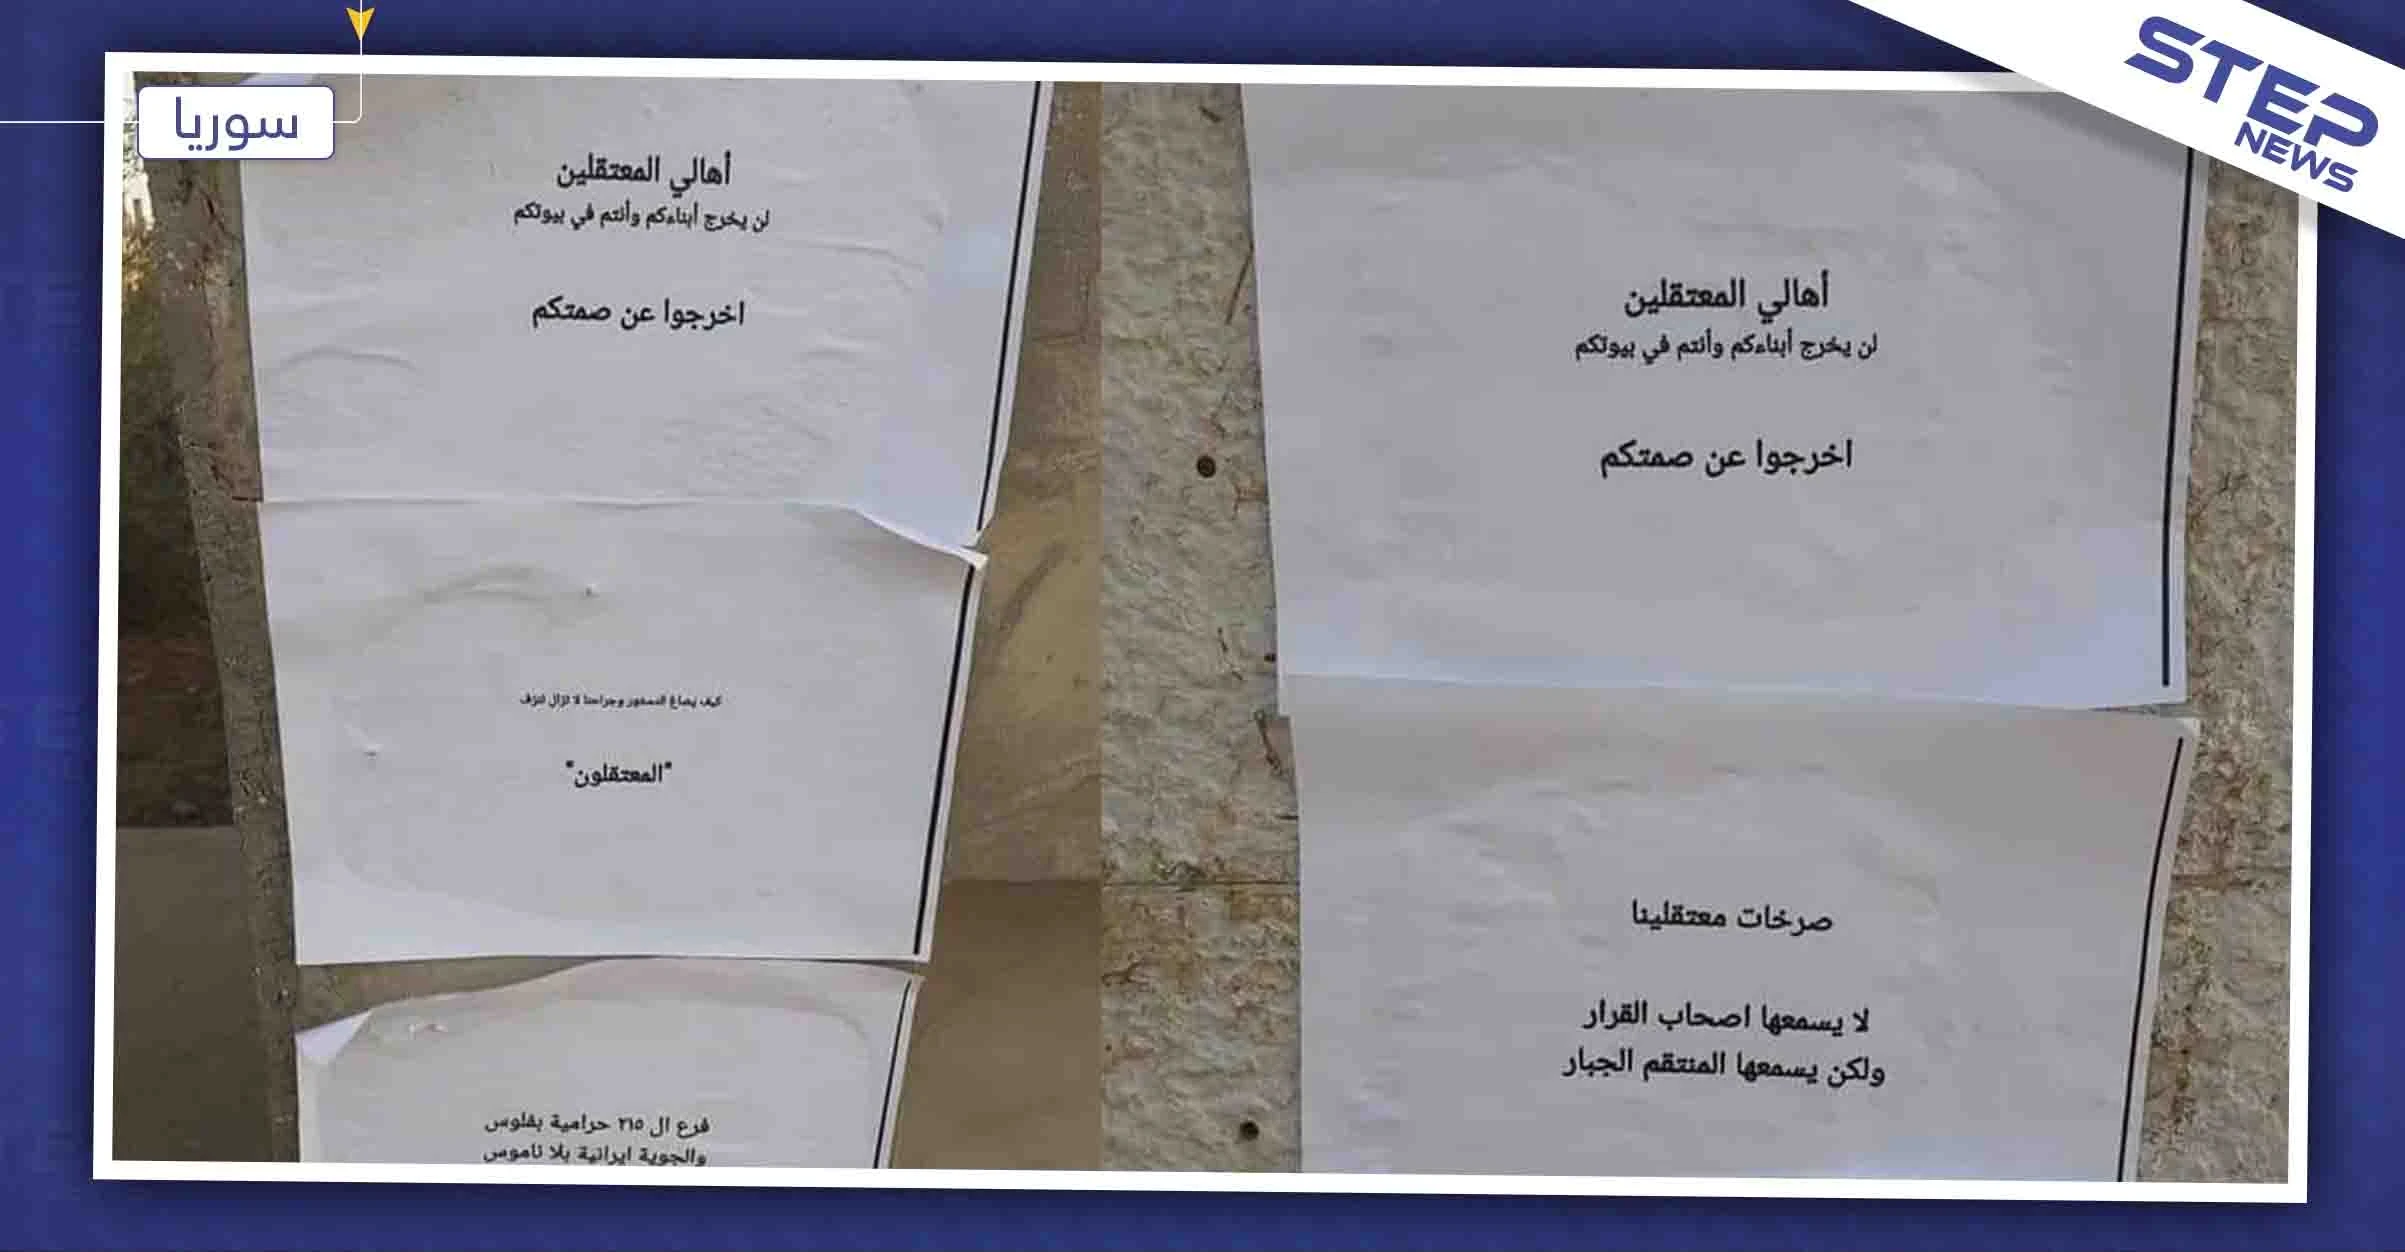 سوريا
STEP
NEWS
أهالي المعتقلين
لن يخرج أبناءكم وأنتم في بيوتكم
اخرجوا عن صمتكم
صرخات معتقلينا
لا يسمعها اصحاب القرار
ولكن يسمعها المنتقم الجبار
أهالي المعتقلين
لن يخرج أبناءكم وأنتم في بيوتكم
اخرجوا عن صمتكم
كيف يصاغ الدستور وجراحنا لا تزال تنزف
"المعتقلون"
فرع ال ٢١٥ حرامية بفلوس
والجوية ايرانية بلا ناموس